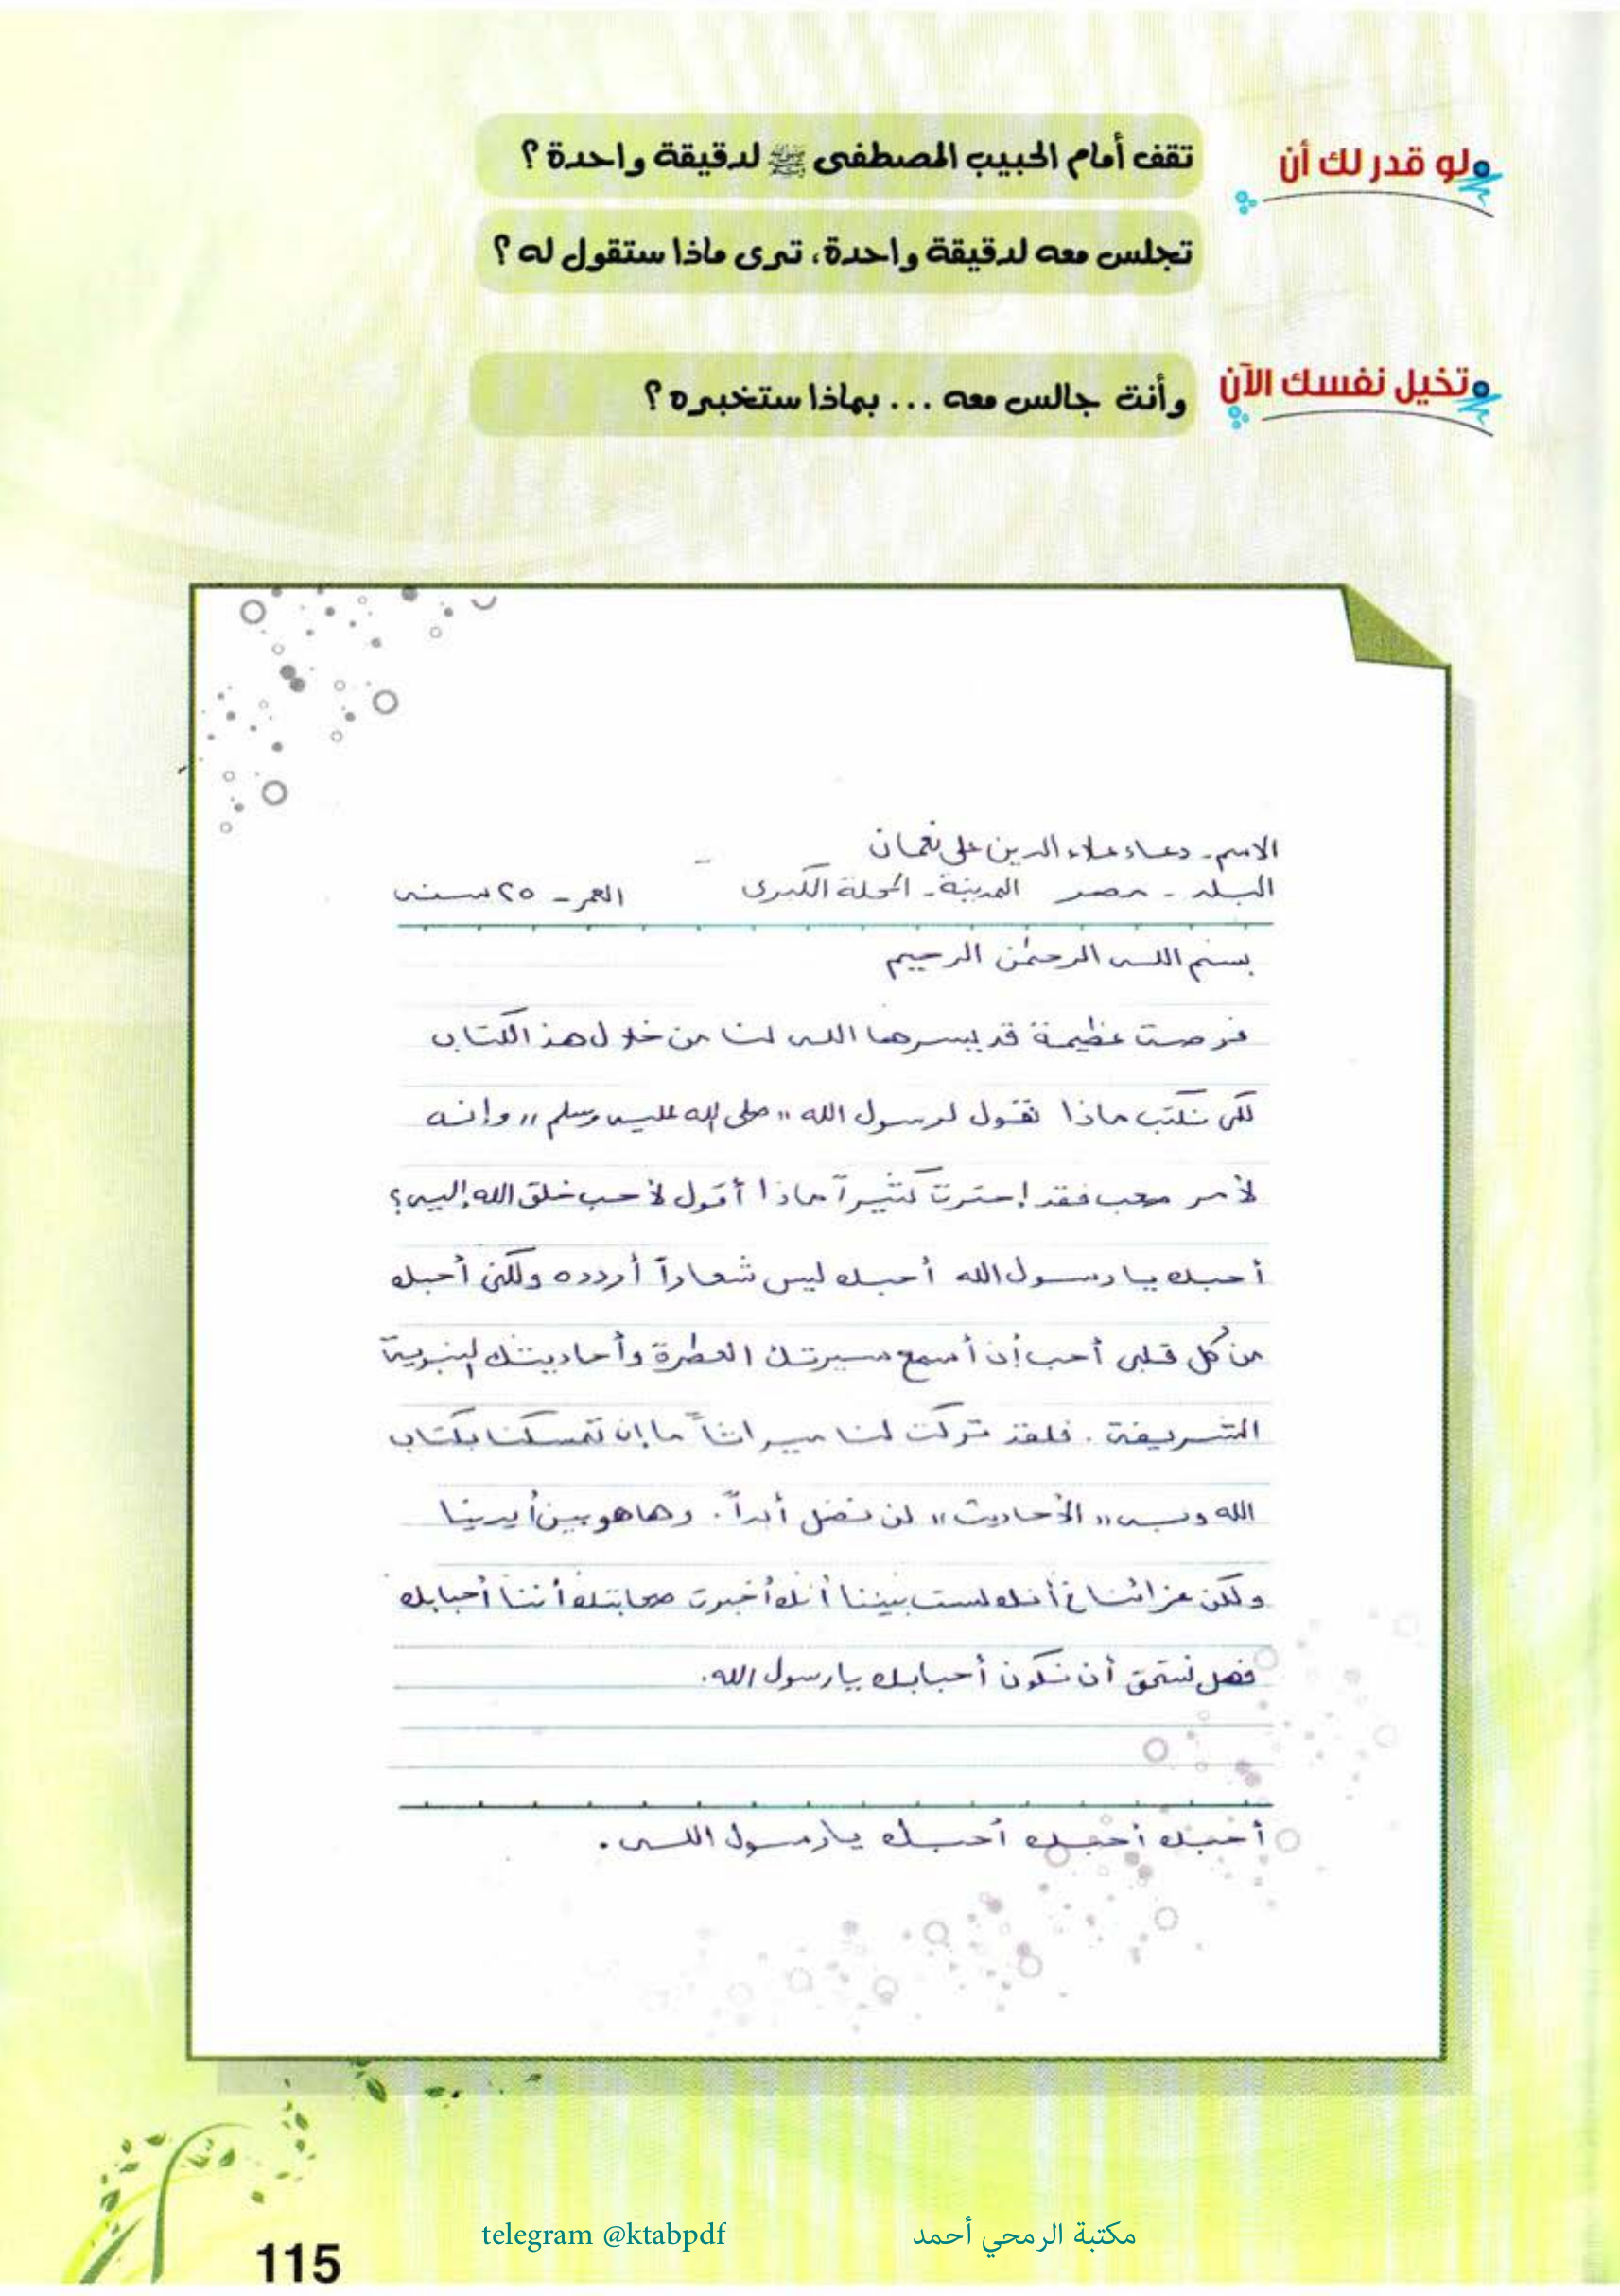 لو قدر لك أن تقف أمام الحبيب المصطفى ﷺ لدقيقة واحدة ؟
تجلس معه لدقيقة واحدة، ترى ماذا ستقول له ؟
تخيل نفسك الآن وأنت جالس معه ... بماذا ستخبره ؟
الاسم - دعاء علاء الدين على نعمان
البلد - مصر المدينة - المحلة الكبرى العمر - ٢٥ سنه
بسم الله الرحمٰن الرحيم
فرصة عظيمة قد يسرها الله لنا من خلال هذا الكتاب
لكى نكتب ماذا نقول لرسول الله " صلى الله عليه وسلم " وإنه
لأمر صعب فقد إحترت كثيراً ماذا أقول لأحب خلق الله إليه؟
أحبك يا رسول الله أحبك ليس شعاراً أردده ولكنى أحبك
من كل قلبى أحب أن أسمع سيرتك العطرة وأحاديثك النبوية
الشريفة . فلقد تركت لنا ميراثاً ما إن تمسكنا بكتاب
الله وبه " الأحاديث " لن نضل أبداً . وها هو بين أيدينا
ولكن عزائنا فى أنك لست بيننا أنك أخبرت صحابتك أننا أحبابك
فهل نستحق أن نكون أحبابك يا رسول الله.
أحبك أحبك أحبك يا رسول الله .
telegram @ktabpdf مكتبة الرمحي أحمد
115